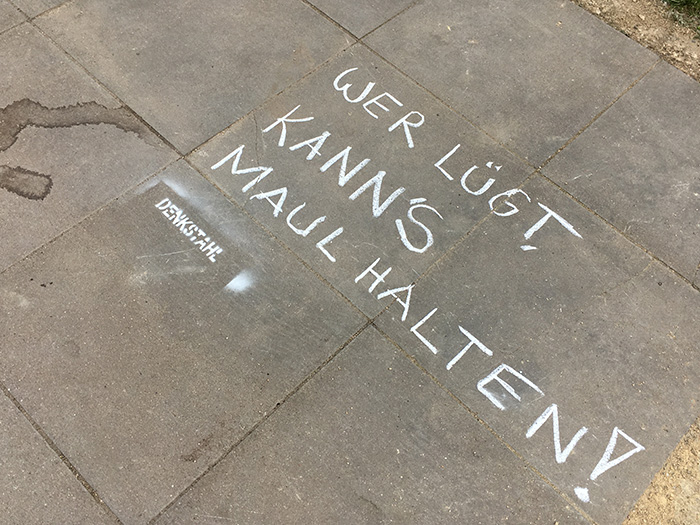 WER LÜGT,
KANN'S
MAUL HALTEN!
DENKSTAHL